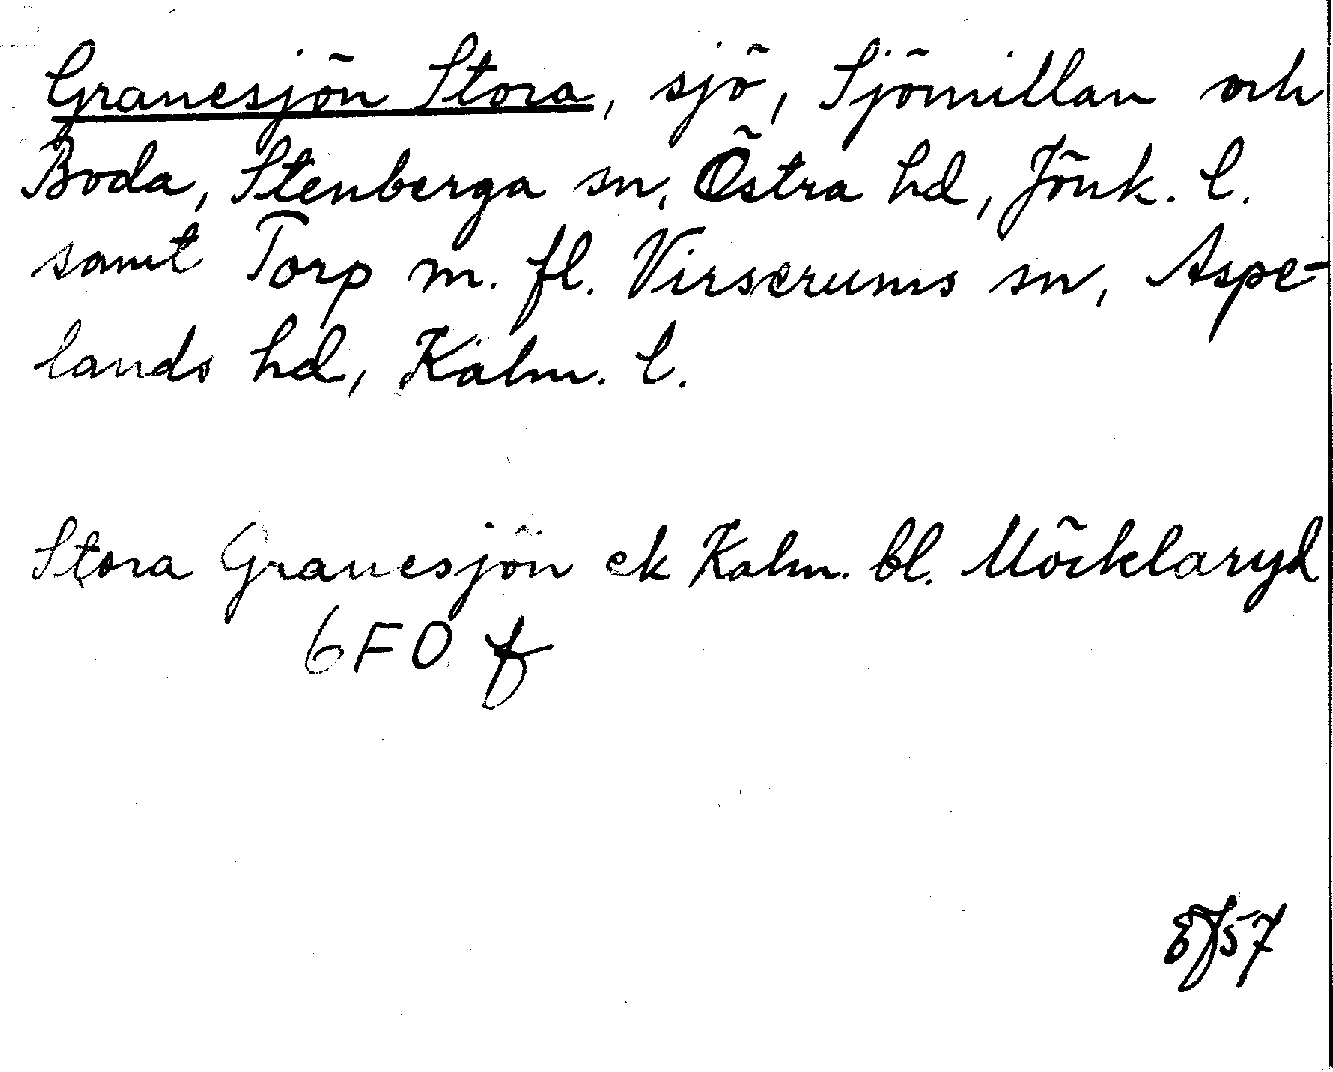 Granesjön Stora, sjö, Sjömillan och
Boda, Stenberga sn, Östra hd, Jönk. l.
samt Torp m. fl. Virserums sn, Aspe-
lands hd, Kalm. l.
Stora Granesjön ek Kalm. bl. Möcklaryd
6F0 f